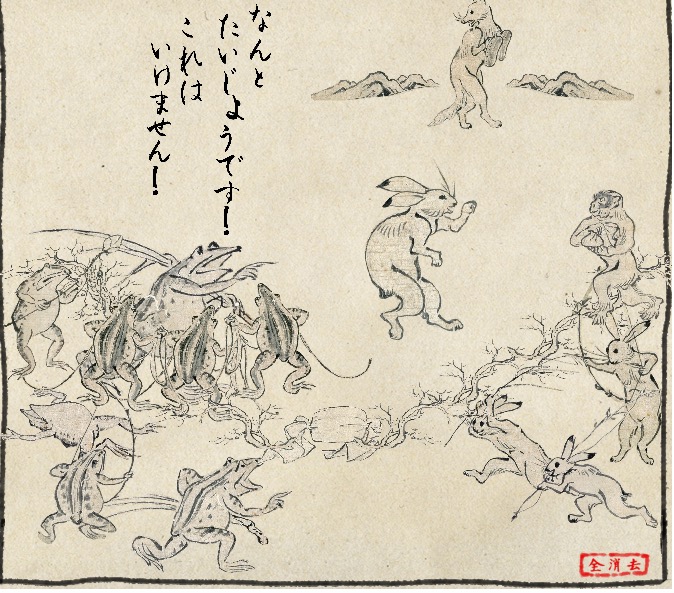 なんと
たいじょうです！
これは
いけません！
全消去